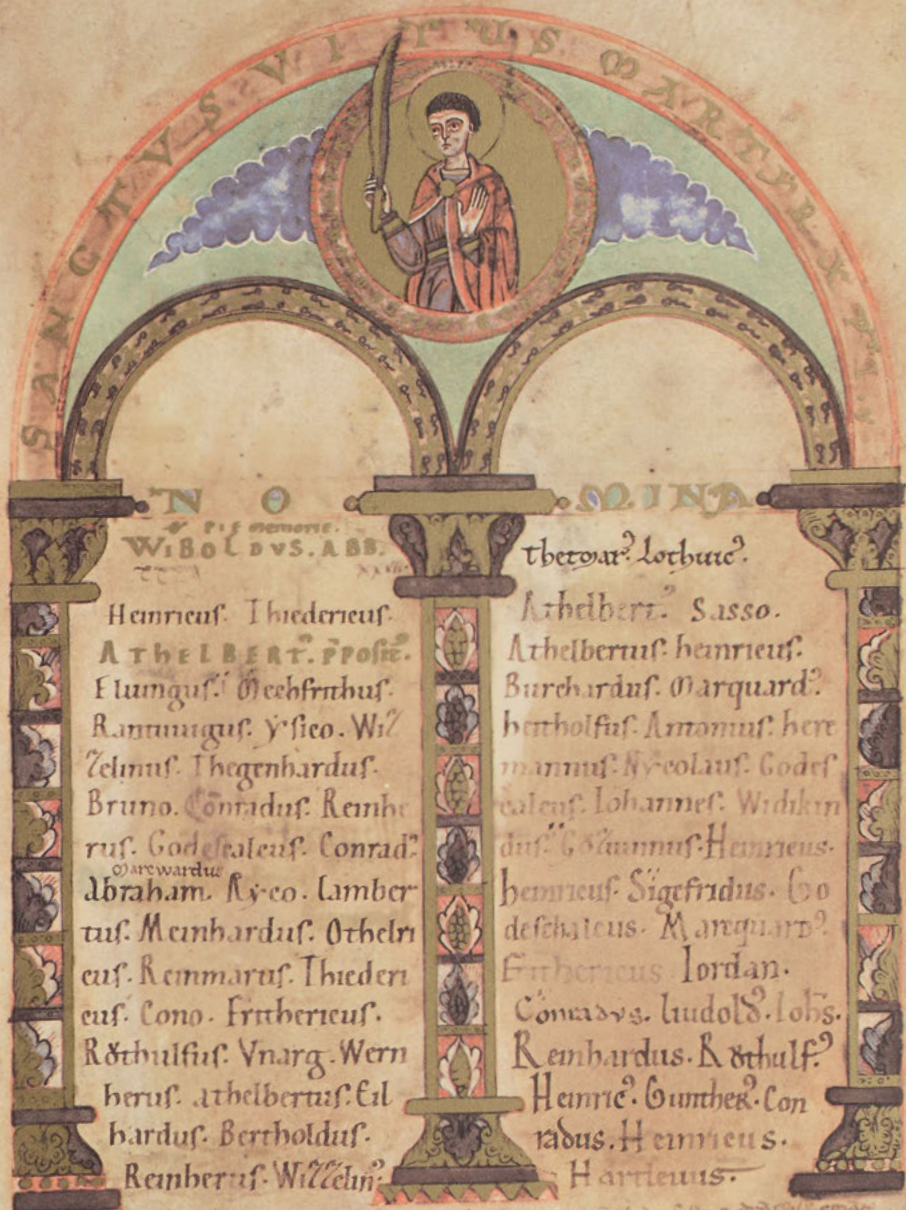 SANCTVS VITUS MARTYR XPI.
NOMINA
PIE memorie.
WIBOLDVS. ABB.
Heinricus. Thiedericus.
AThELBERT᾿. P̄POSIT᾿.
Elungus. Mechfrithus.
ysico. Wil
lelmus. Thegenhardus.
Bruno. Conradus. Reinbe
rus. Godescalcus. Conrad᾿.
Marcwardus
Abraham. Ryco. Lamber
tus. Meinhardus. Othelri
cus. Reinmarus. Thiederi
cus. Cono. Frithericus.
Rothulfus. Vnarg. Wern
herus. Athelbertus. Eil
hardus. Bertholdus.
Reinherus. Willelm᾿.
thetmar᾿. Lothuic᾿.
Athelbert᾿. Sasso.
Athelbertus. heinricus.
Burchardus. Marquard᾿.
bertholfus. Antonius. here
mannus. Nycolaus. Godes
calcus. Iohannes. Widikin
dus. Heinricus.
heinricus. Sigefridus. Go
deschalcus. Marquard᾿.
Frithericus Iordan.
Conradvs. Ludolf᾿. Iohs.
Reinhardus. Rothulf᾿.
Heinric᾿. Gunther. Con
radus. Heinricus.
Hartleuus.